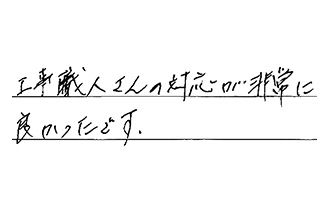 工事職人さんの対応が非常に
良かったです.